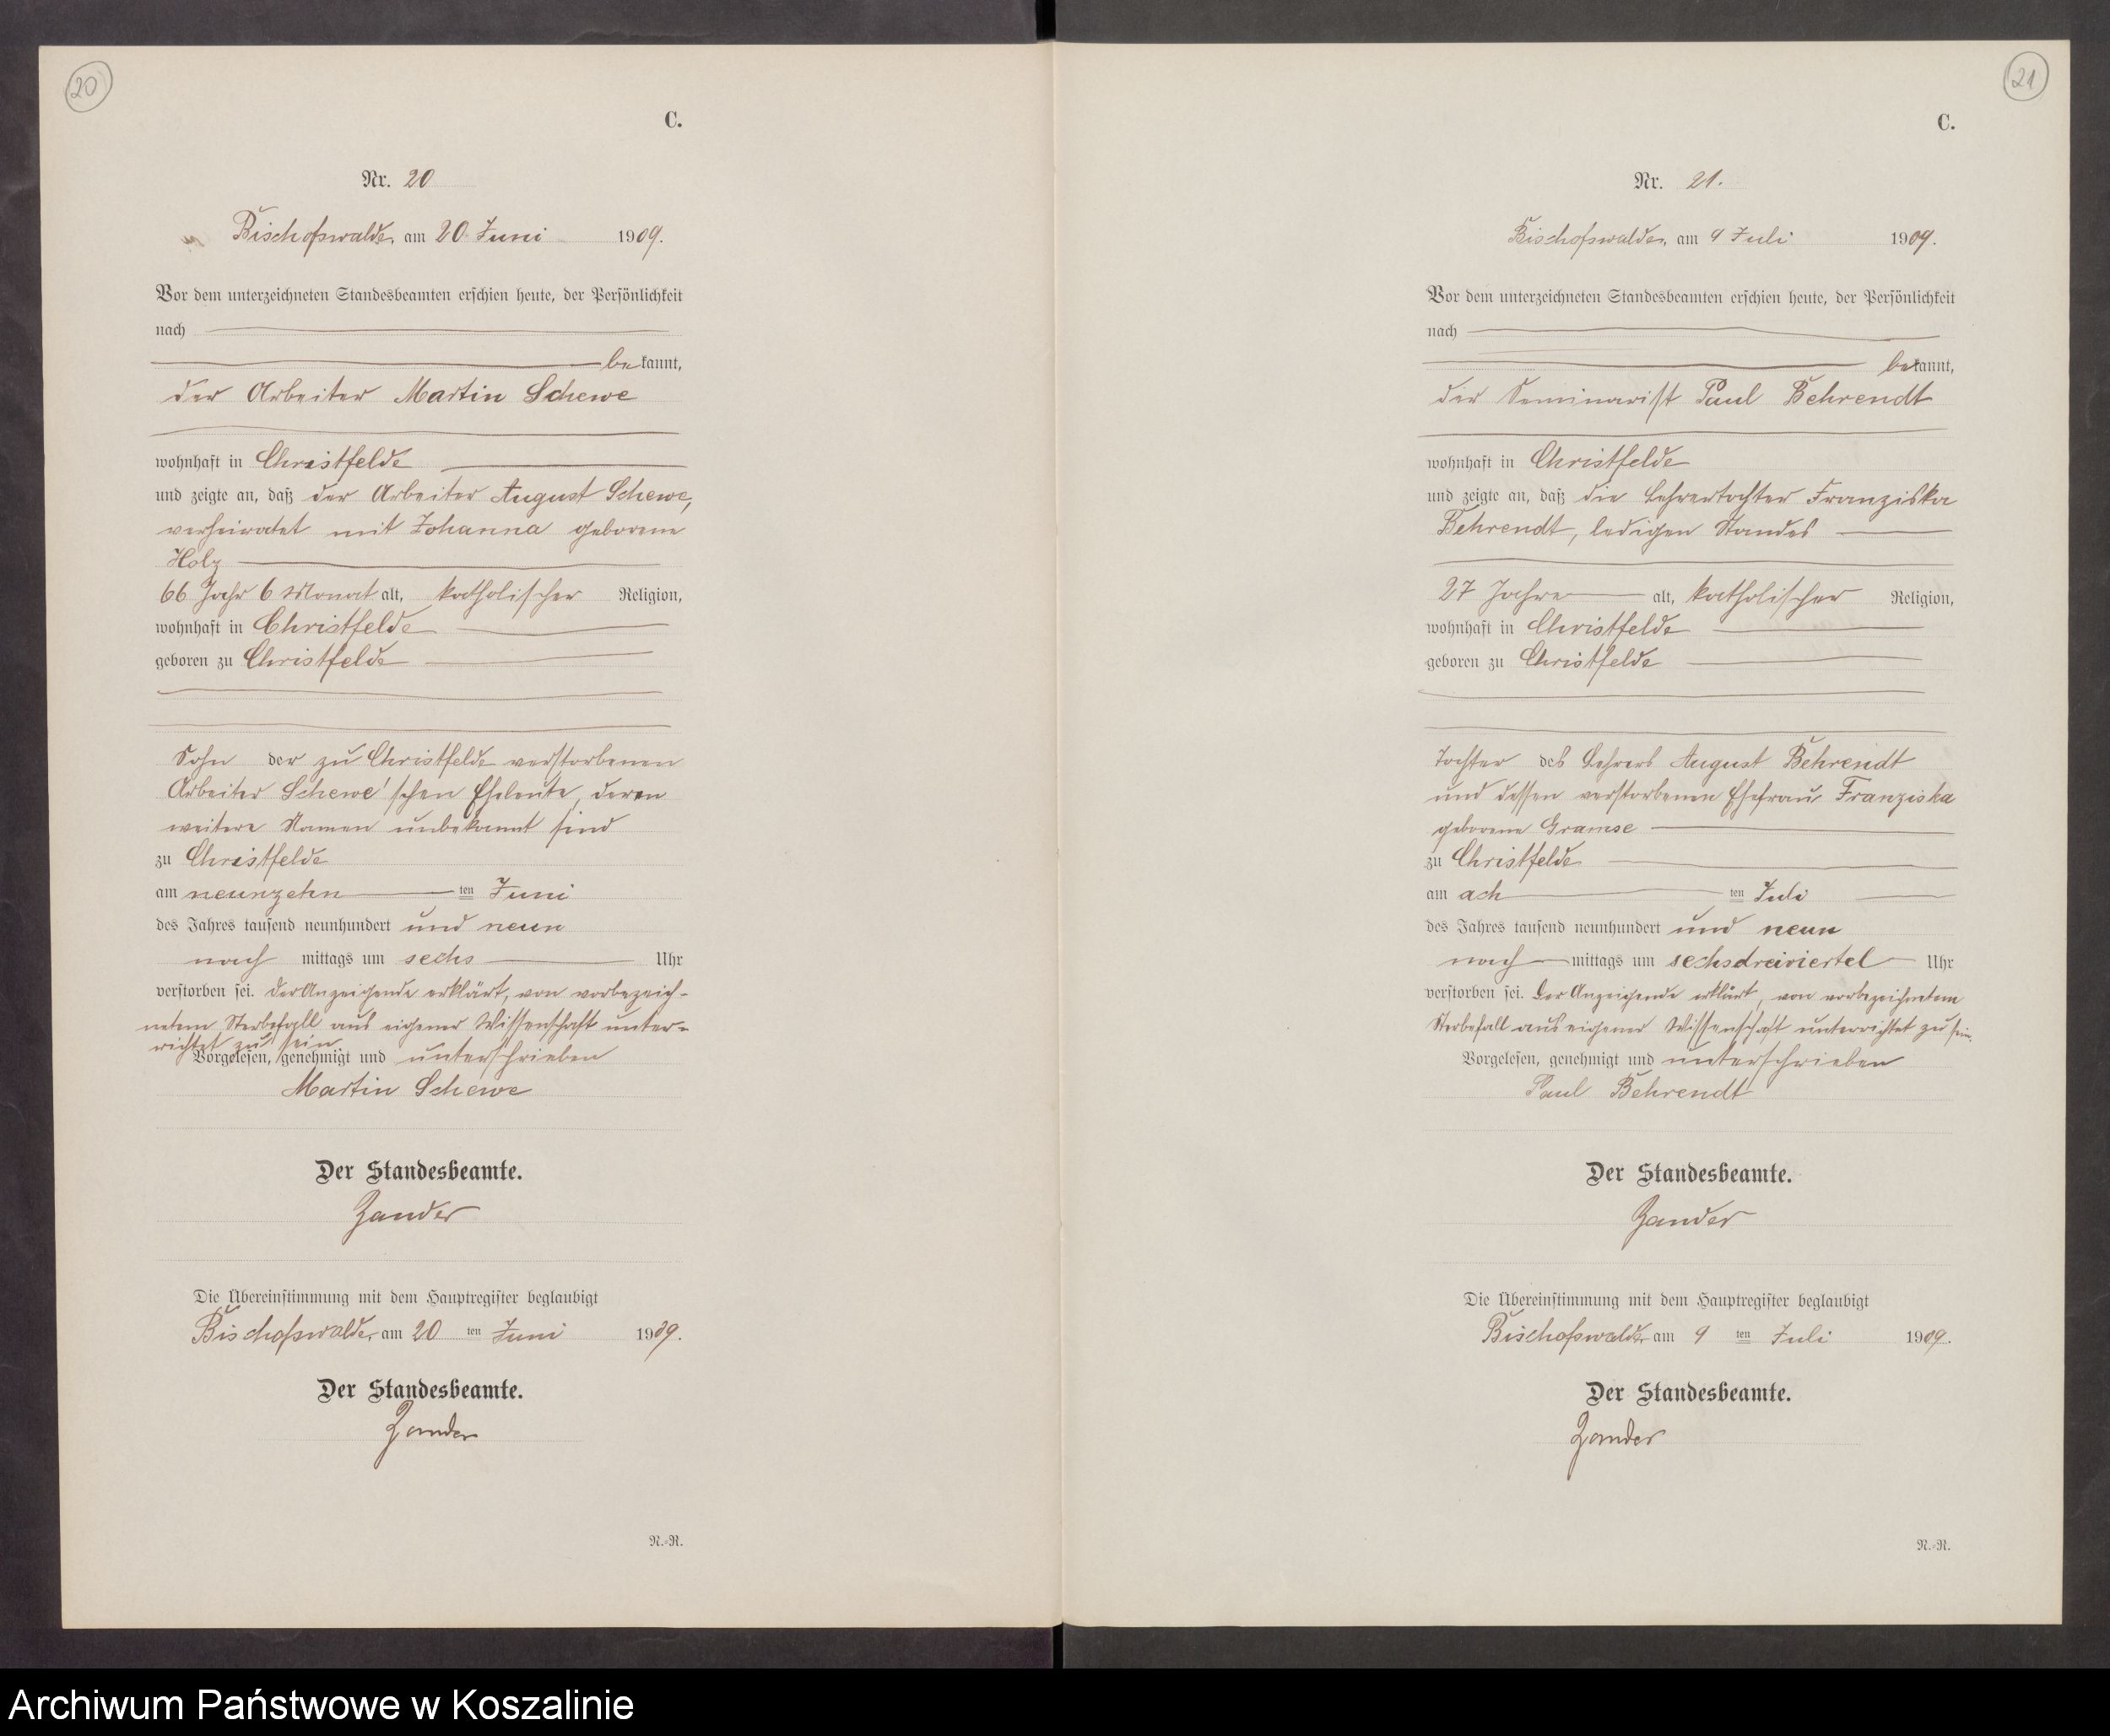 20
C.
Nr. 20
Bischofswalde, am 20 Juni 1909.
Vor dem unterzeichneten Standesbeamten erschien heute, der Persönlichkeit
nach
bekannt,
der Arbeiter Martin Schewe
wohnhaft in Christfelde
und zeigte an, daß der Arbeiter August Schewe,
verheiratet mit Johanna geborene
Holz
66 Jahr 6 Monat alt, katholischer Religion,
wohnhaft in Christfelde
geboren zu Christfelde
Sohn der zu Christfelde verstorbenen
Arbeiter Schewe'schen Eheleute, deren
weitere Namen unbekannt sind
zu Christfelde
am neunzehn ten Juni
des Jahres tausend neunhundert und neun
nach mittags um sechs Uhr
verstorben sei. Der Anzeigende erklärt, von vorbezeich-
netem Sterbefall aus eigener Wissenschaft unter-
richtet zu sein.
Vorgelesen, genehmigt und unterschrieben
Martin Schewe
Der Standesbeamte.
Zander
Die Übereinstimmung mit dem Hauptregister beglaubigt
Bischofswalde, am 20 ten Juni 1909.
Der Standesbeamte.
Zander
N.-R.
21
C.
Nr. 21.
Bischofswalde, am 9 Juli 1909.
Vor dem unterzeichneten Standesbeamten erschien heute, der Persönlichkeit
nach
bekannt,
der Seminarist Paul Behrendt
wohnhaft in Christfelde
und zeigte an, daß die Lehrertochter Franziska
Behrendt, ledigen Standes
27 Jahre alt, katholischer Religion,
wohnhaft in Christfelde
geboren zu Christfelde
Tochter des Lehrers August Behrendt
und dessen verstorbenen Ehefrau Franziska
geborene Gramse
zu Christfelde
am ach ten Juli
des Jahres tausend neunhundert und neun
nach mittags um sechsdreiviertel Uhr
verstorben sei. Der Anzeigende erklärt, von vorbezeichnetem
Sterbefall aus eigener Wissenschaft unterrichtet zu sein.
Vorgelesen, genehmigt und unterschrieben
Paul Behrendt
Der Standesbeamte.
Zander
Die Übereinstimmung mit dem Hauptregister beglaubigt
Bischofswalde am 9 ten Juli 1909.
Der Standesbeamte.
Zander
N.-R.
Archiwum Państwowe w Koszalinie